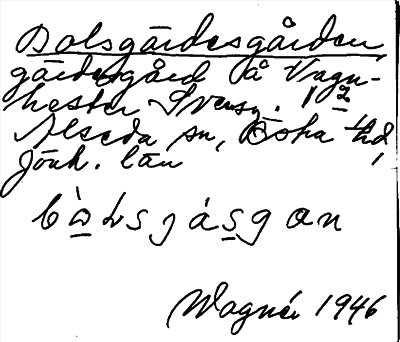 Bolsgärdesgården,
gärdesgård å Vagn-
hester Svensg. 1/2
Alseda sn, Östra hd,
Jönk. län
Wagnér 1946